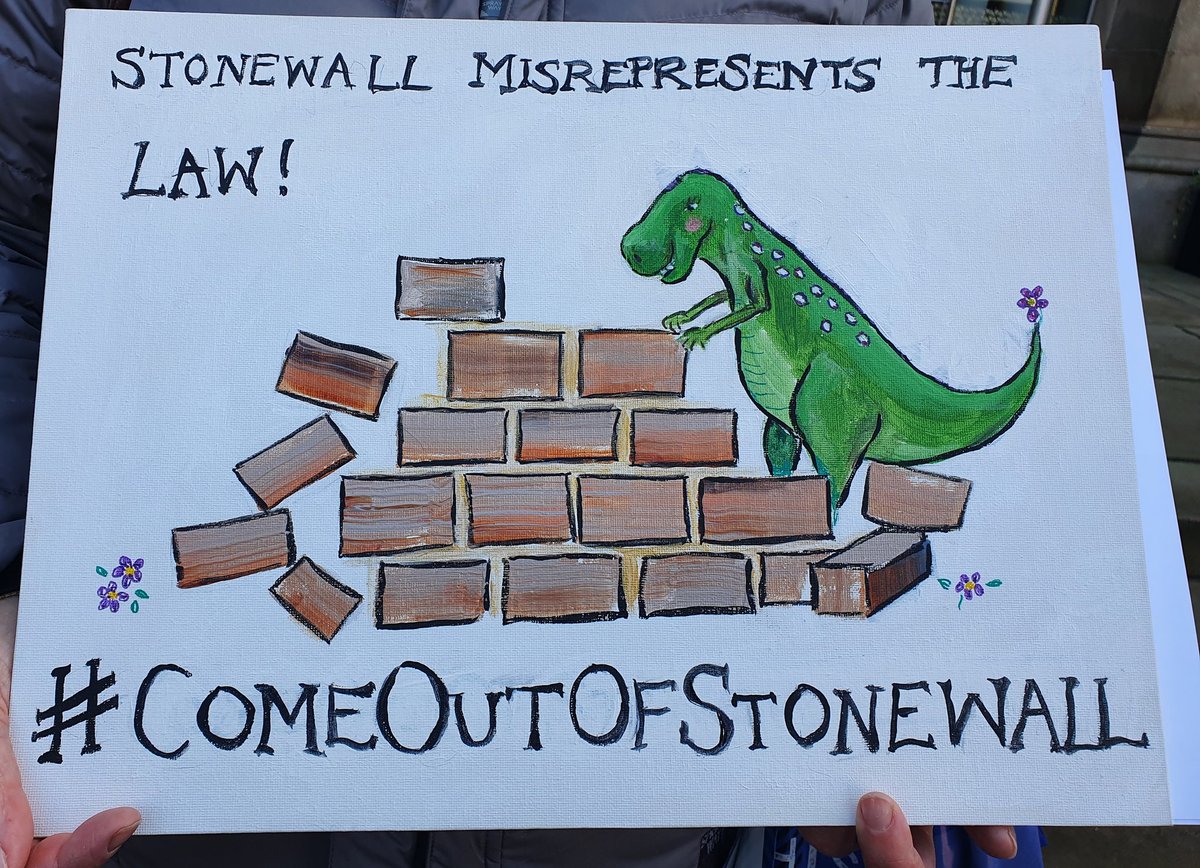 STONEWALL MISREPRESENTS THE
LAW!
#COMEOUTOFSTONEWALL